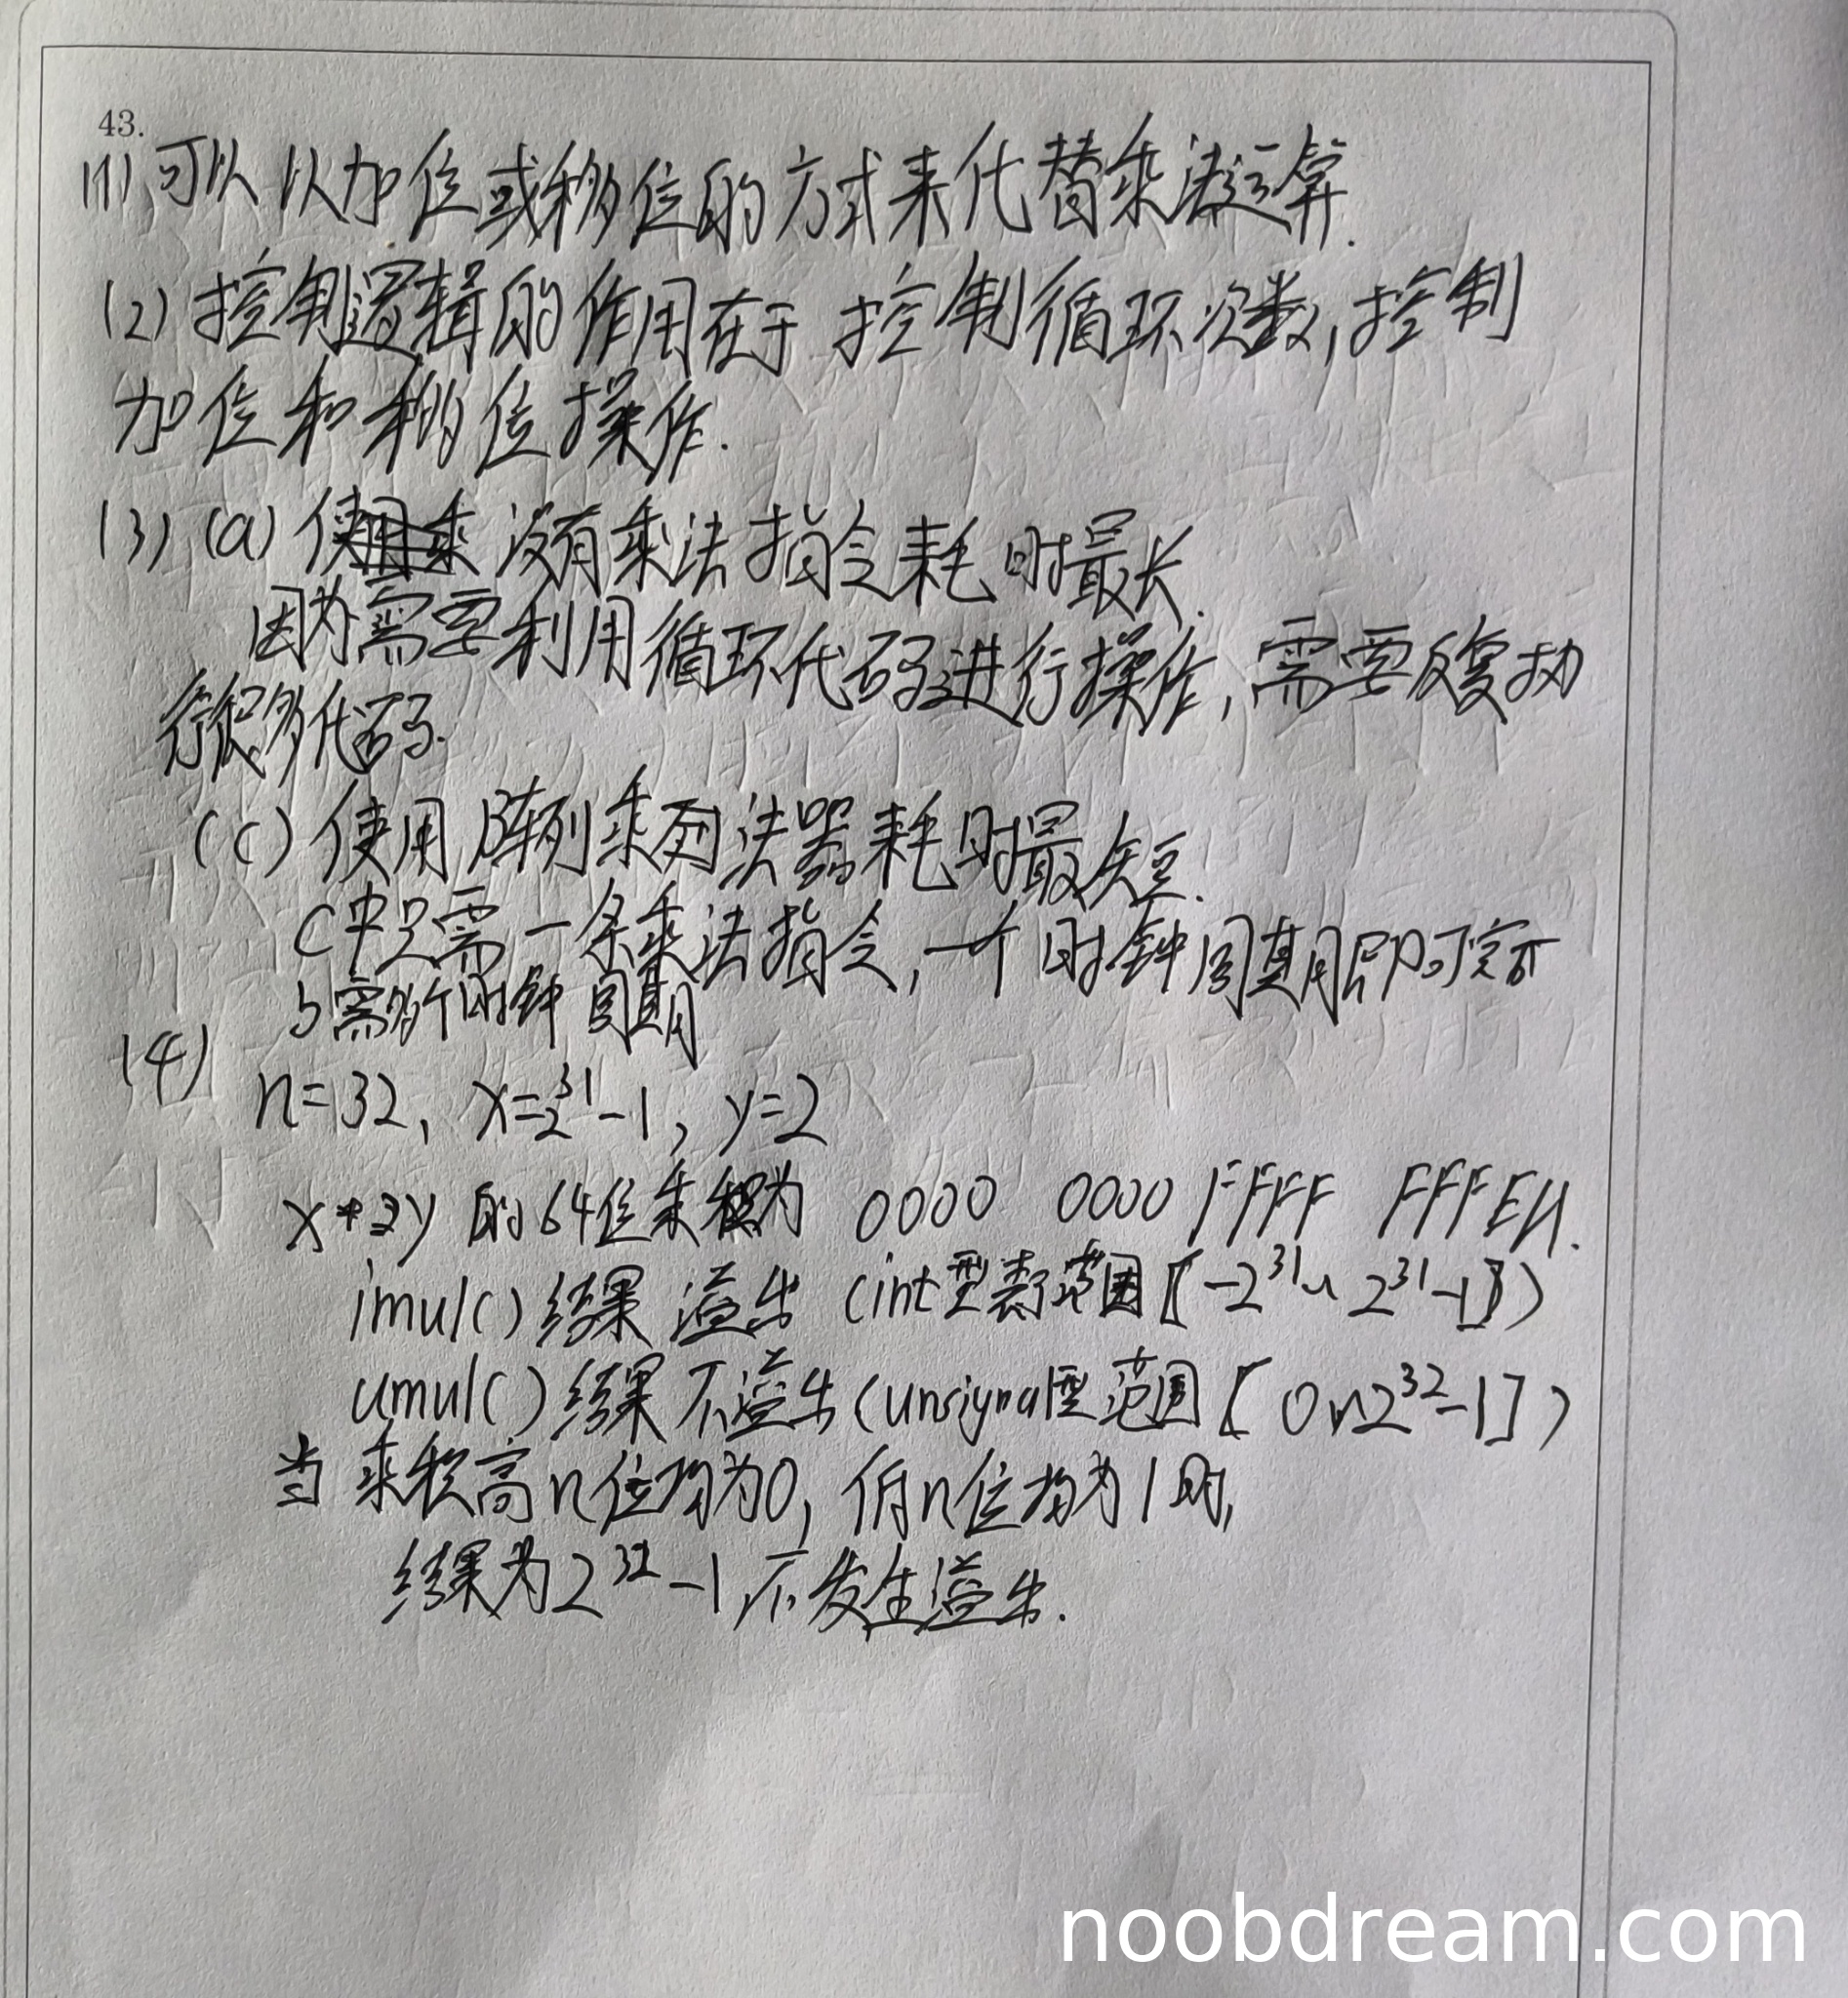 43.
(1) 可以以加位或移位的方式来代替乘法运算.
(2) 控制逻辑的作用在于 控制循环次数, 控制
加位和移位操作.
(3) (a) 使用乘 没有乘法指令耗时最长.
因为需要利用循环代码进行操作, 需要反复执
行很多代码.
(c) 使用阵列乘列法器耗时最短.
C中只需一条乘法指令, 一个时钟周期即可完成
b需多个时钟周期
(4)
n=32, x=2³¹-1, y=2
x*2y 的64位乘积为 0000 0000 FFFF FFFEH.
imul() 结果 溢出 (int型表示范围【-2³¹~2³¹-1】)
umul() 结果 不溢出 (unsignal型范围【0~2³²-1])
当乘积高n位均为0, 低n位均为1时,
结果为2³²-1, 不发生溢出.
noobdream.com